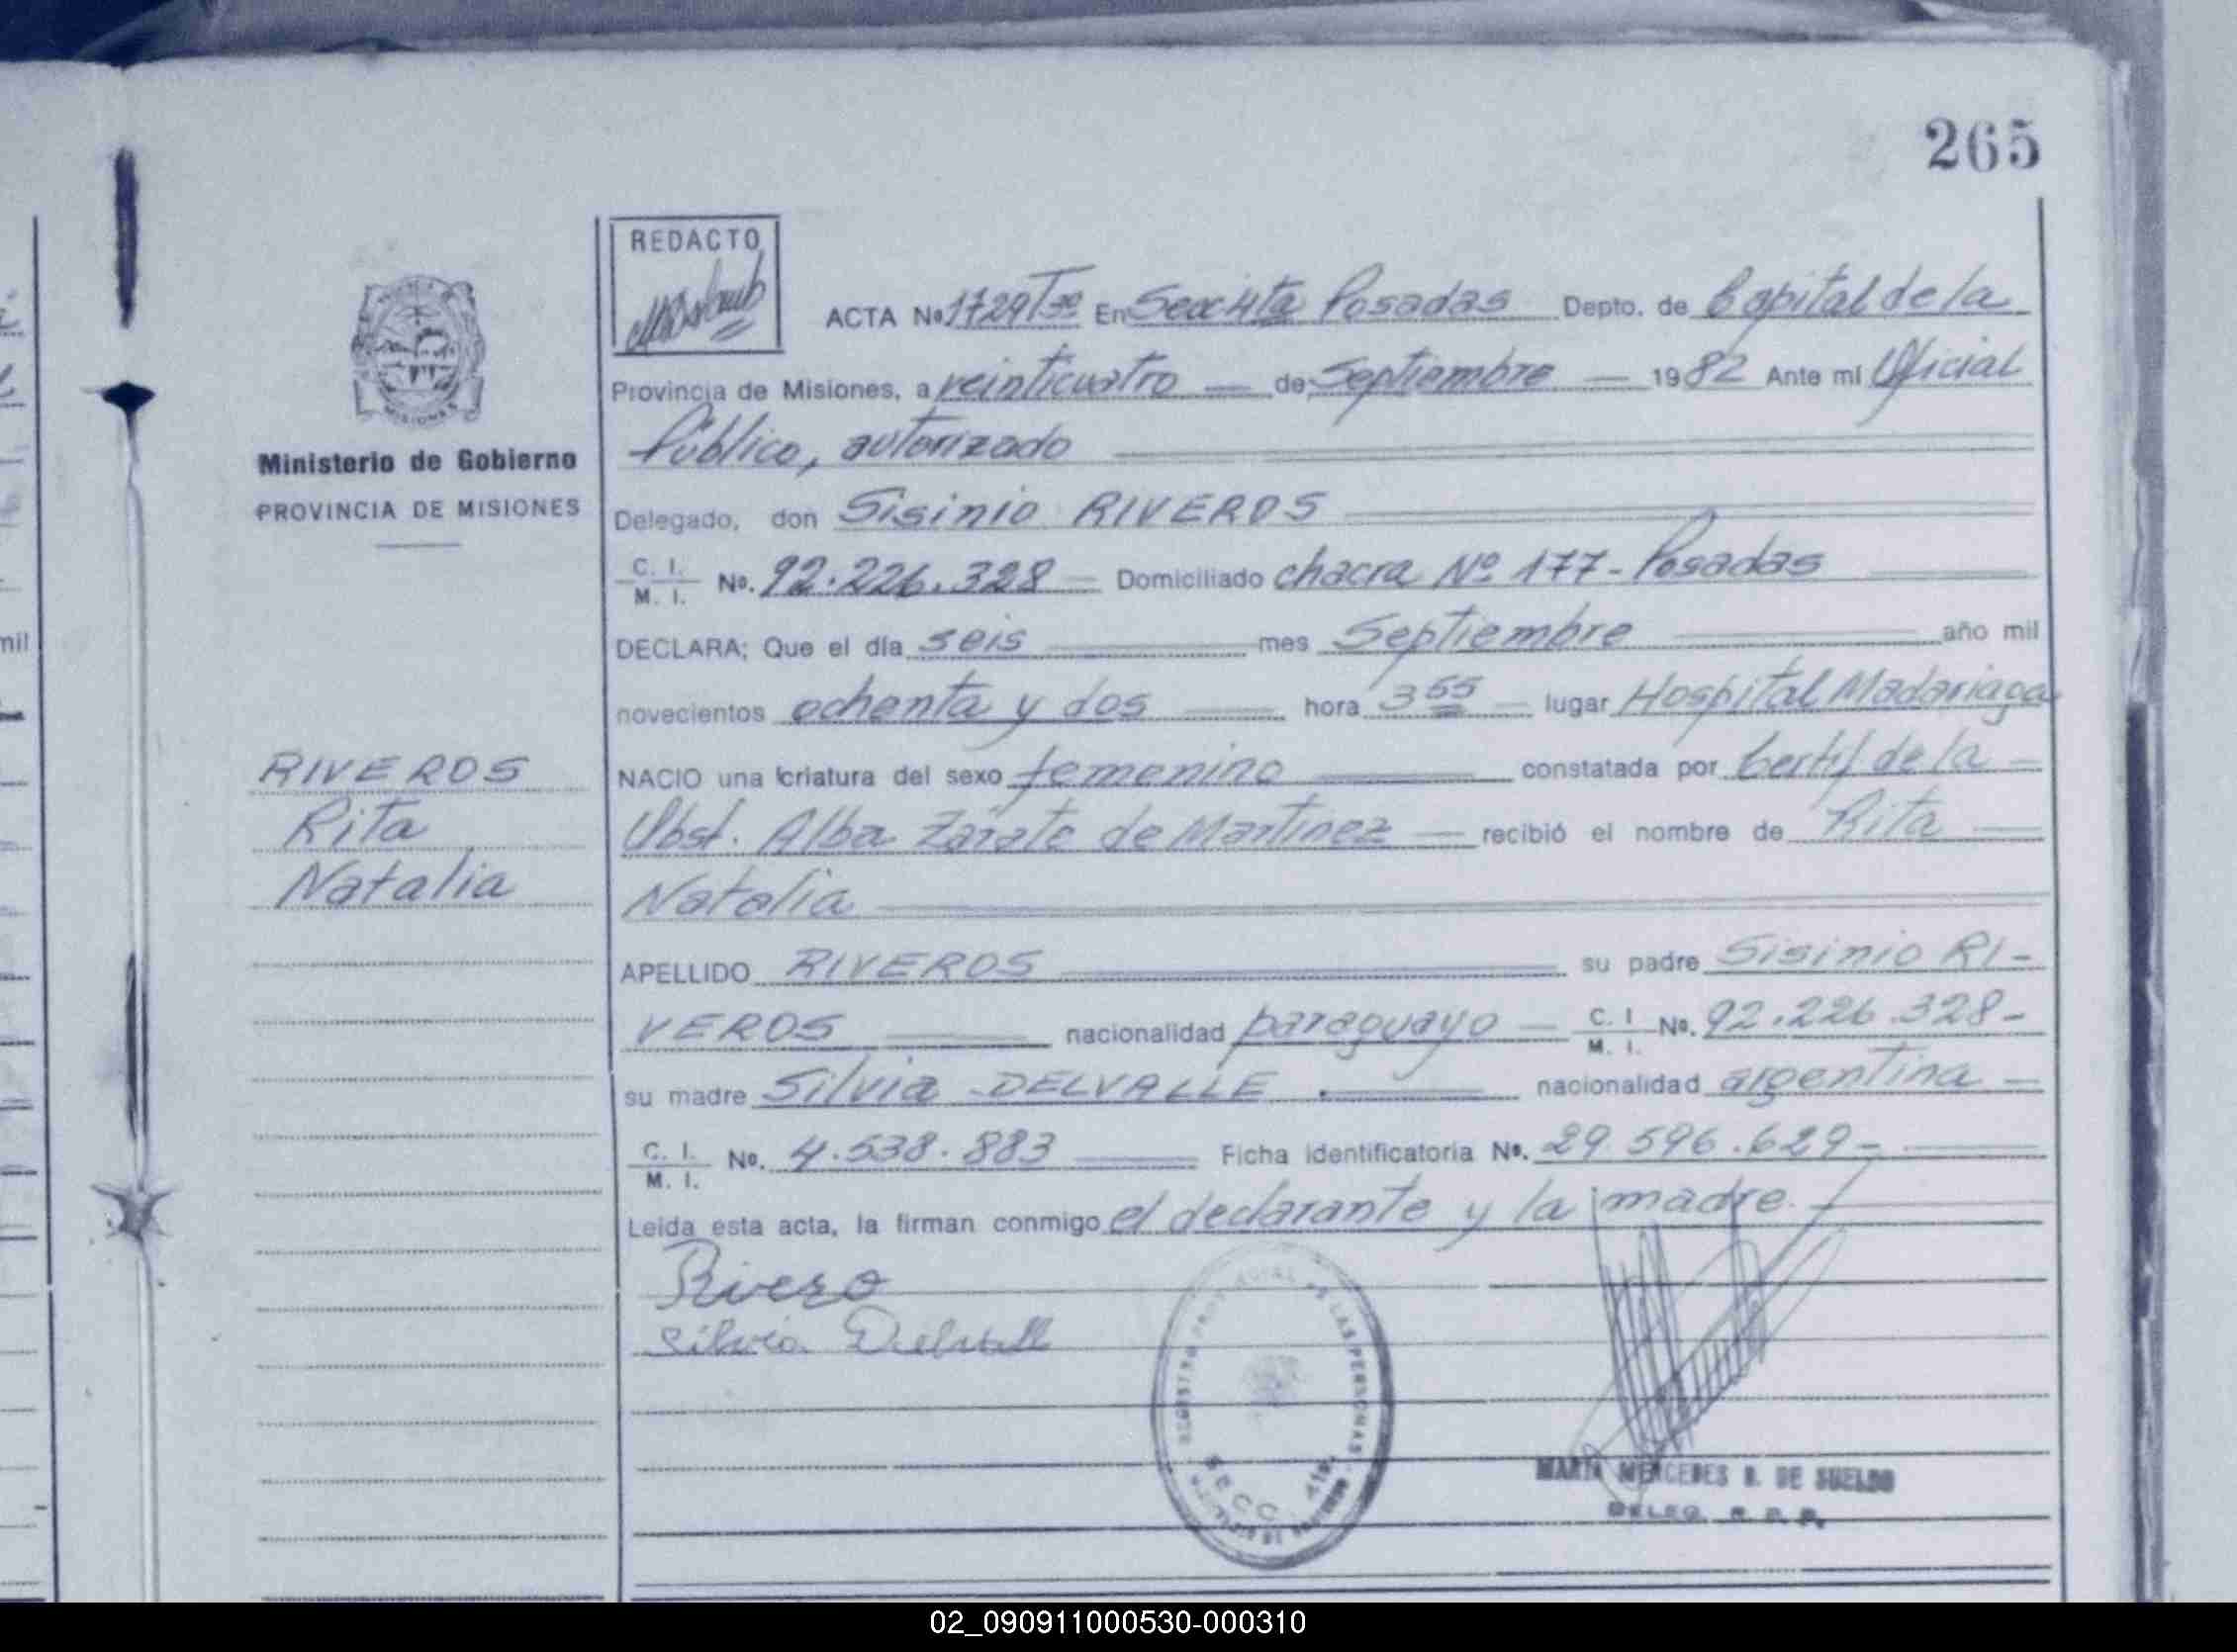 265
REDACTO
ACTA No. 1729 T 3º En Secc 4ta Posadas Depto. de Capital de la
Provincia de Misiones, a veinticuatro de Septiembre 1982 Ante mi Oficial
Público, autorizado
Ministerio de Gobierno
PROVINCIA DE MISIONES
Delegado, don Sisinio RIVEROS
C. I. M. I. No. 92.226.328 Domiciliado chacra Nº 177 - Posadas
DECLARA; Que el día seis mes Septiembre año mil
novecientos ochenta y dos hora 3 55 lugar Hospital Madariaga
NACIO una criatura del sexo femenino constatada por Certif de la
Obst. Alba Zárate de Martinez recibió el nombre de Rita
Natalia
RIVEROS
Rita
Natalia
APELLIDO RIVEROS su padre Sisinio RI-
VEROS nacionalidad paraguayo C. I. M. I. No. 92.226.328-
su madre Silvia DELVALLE nacionalidad argentina
C. I. M. I. No. 4.538.883 Ficha identificatoria No. 29.596.629-
Leída esta acta, la firman conmigo el declarante y la madre.
Rivero
Silvia Delvalle
MARIA MERCEDES R. DE SUELDO
DELEG. R. P. P.
02_090911000530-000310